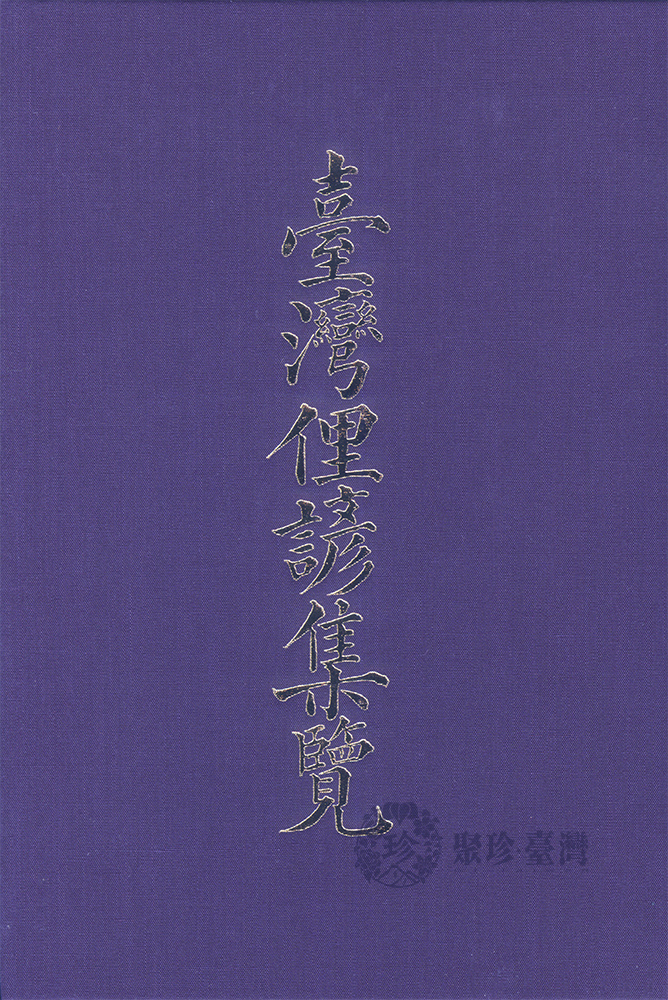 臺灣俚諺集覽
珍
聚珍·臺灣